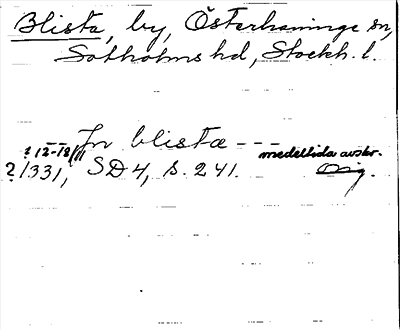 Blista, by, Österhaninge sn,
Sotholms hd, Stockh. l.
-- In blistæ ---
? 12-18/11 medeltida avskr.
? 1331, SD 4, s. 241. Orig.